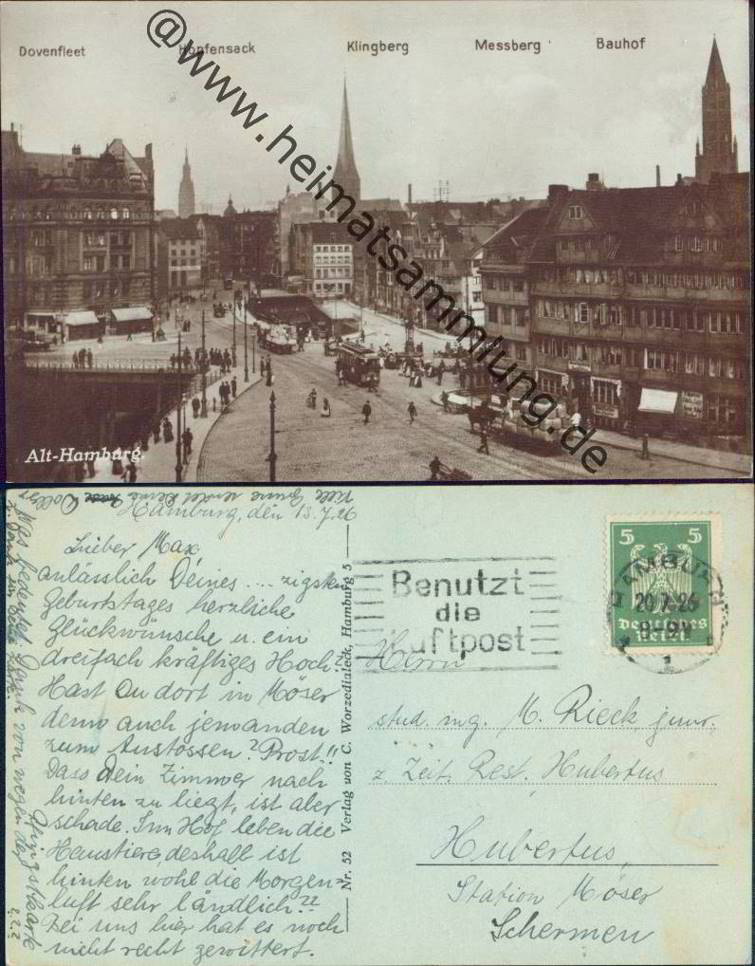 Dovenfleet Hopfensack Klingberg Messberg Bauhof
@www.heimatsammlung.de
Alt-Hamburg.
Hamburg, den 13.7.26
Lieber Max,
anlässlich Deines .... zigsten
Geburtstages herzliche
Glückwünsche u. ein
dreifach kräftiges Hoch!
Hast Du dort in Möser
denn auch jemanden
zum Anstossen? Prost!!
Dass Dein Zimmer nach
hinten zu liegt, ist aber
schade. Im Hof leben die
Haustiere, deshalb ist
hinten wohl die Morgen-
luft sehr ländlich??
Bei uns hier hat es noch
nicht recht gewittert.
Nr. 52 Verlag von C. Worzedialeck, Hamburg 5
Benutzt
die
Luftpost
5 5
Deutsches
Reich
HAMBURG
20.7.26
1
Herrn
stud. ing. M. Rieck, junr.
z. Zeit. Rest. Hubertus
Hubertus,
Station Möser
Schermen